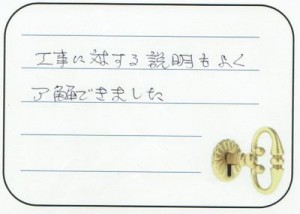 工事に対する説明もよく
了解できました